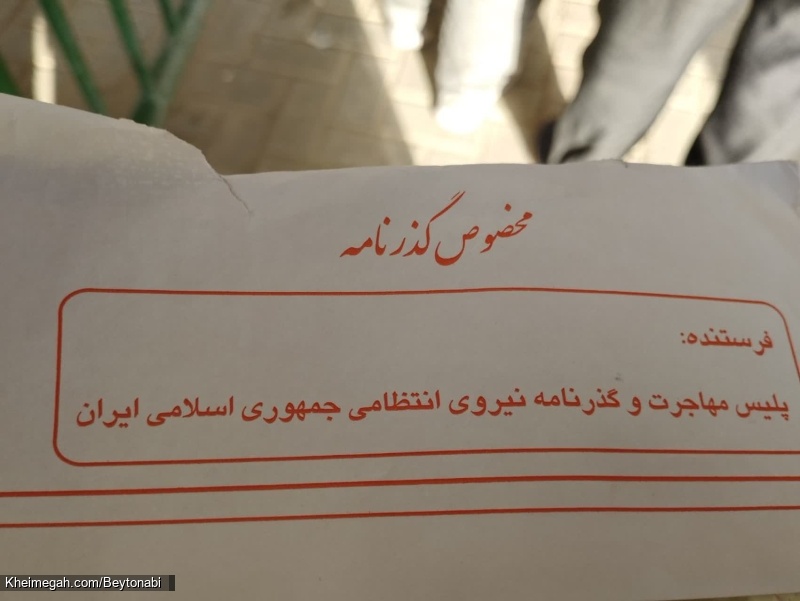 مخصوص گذرنامه
فرستنده:
پلیس مهاجرت و گذرنامه نیروی انتظامی جمهوری اسلامی ایران
Kheimegah.com/Beytonabi